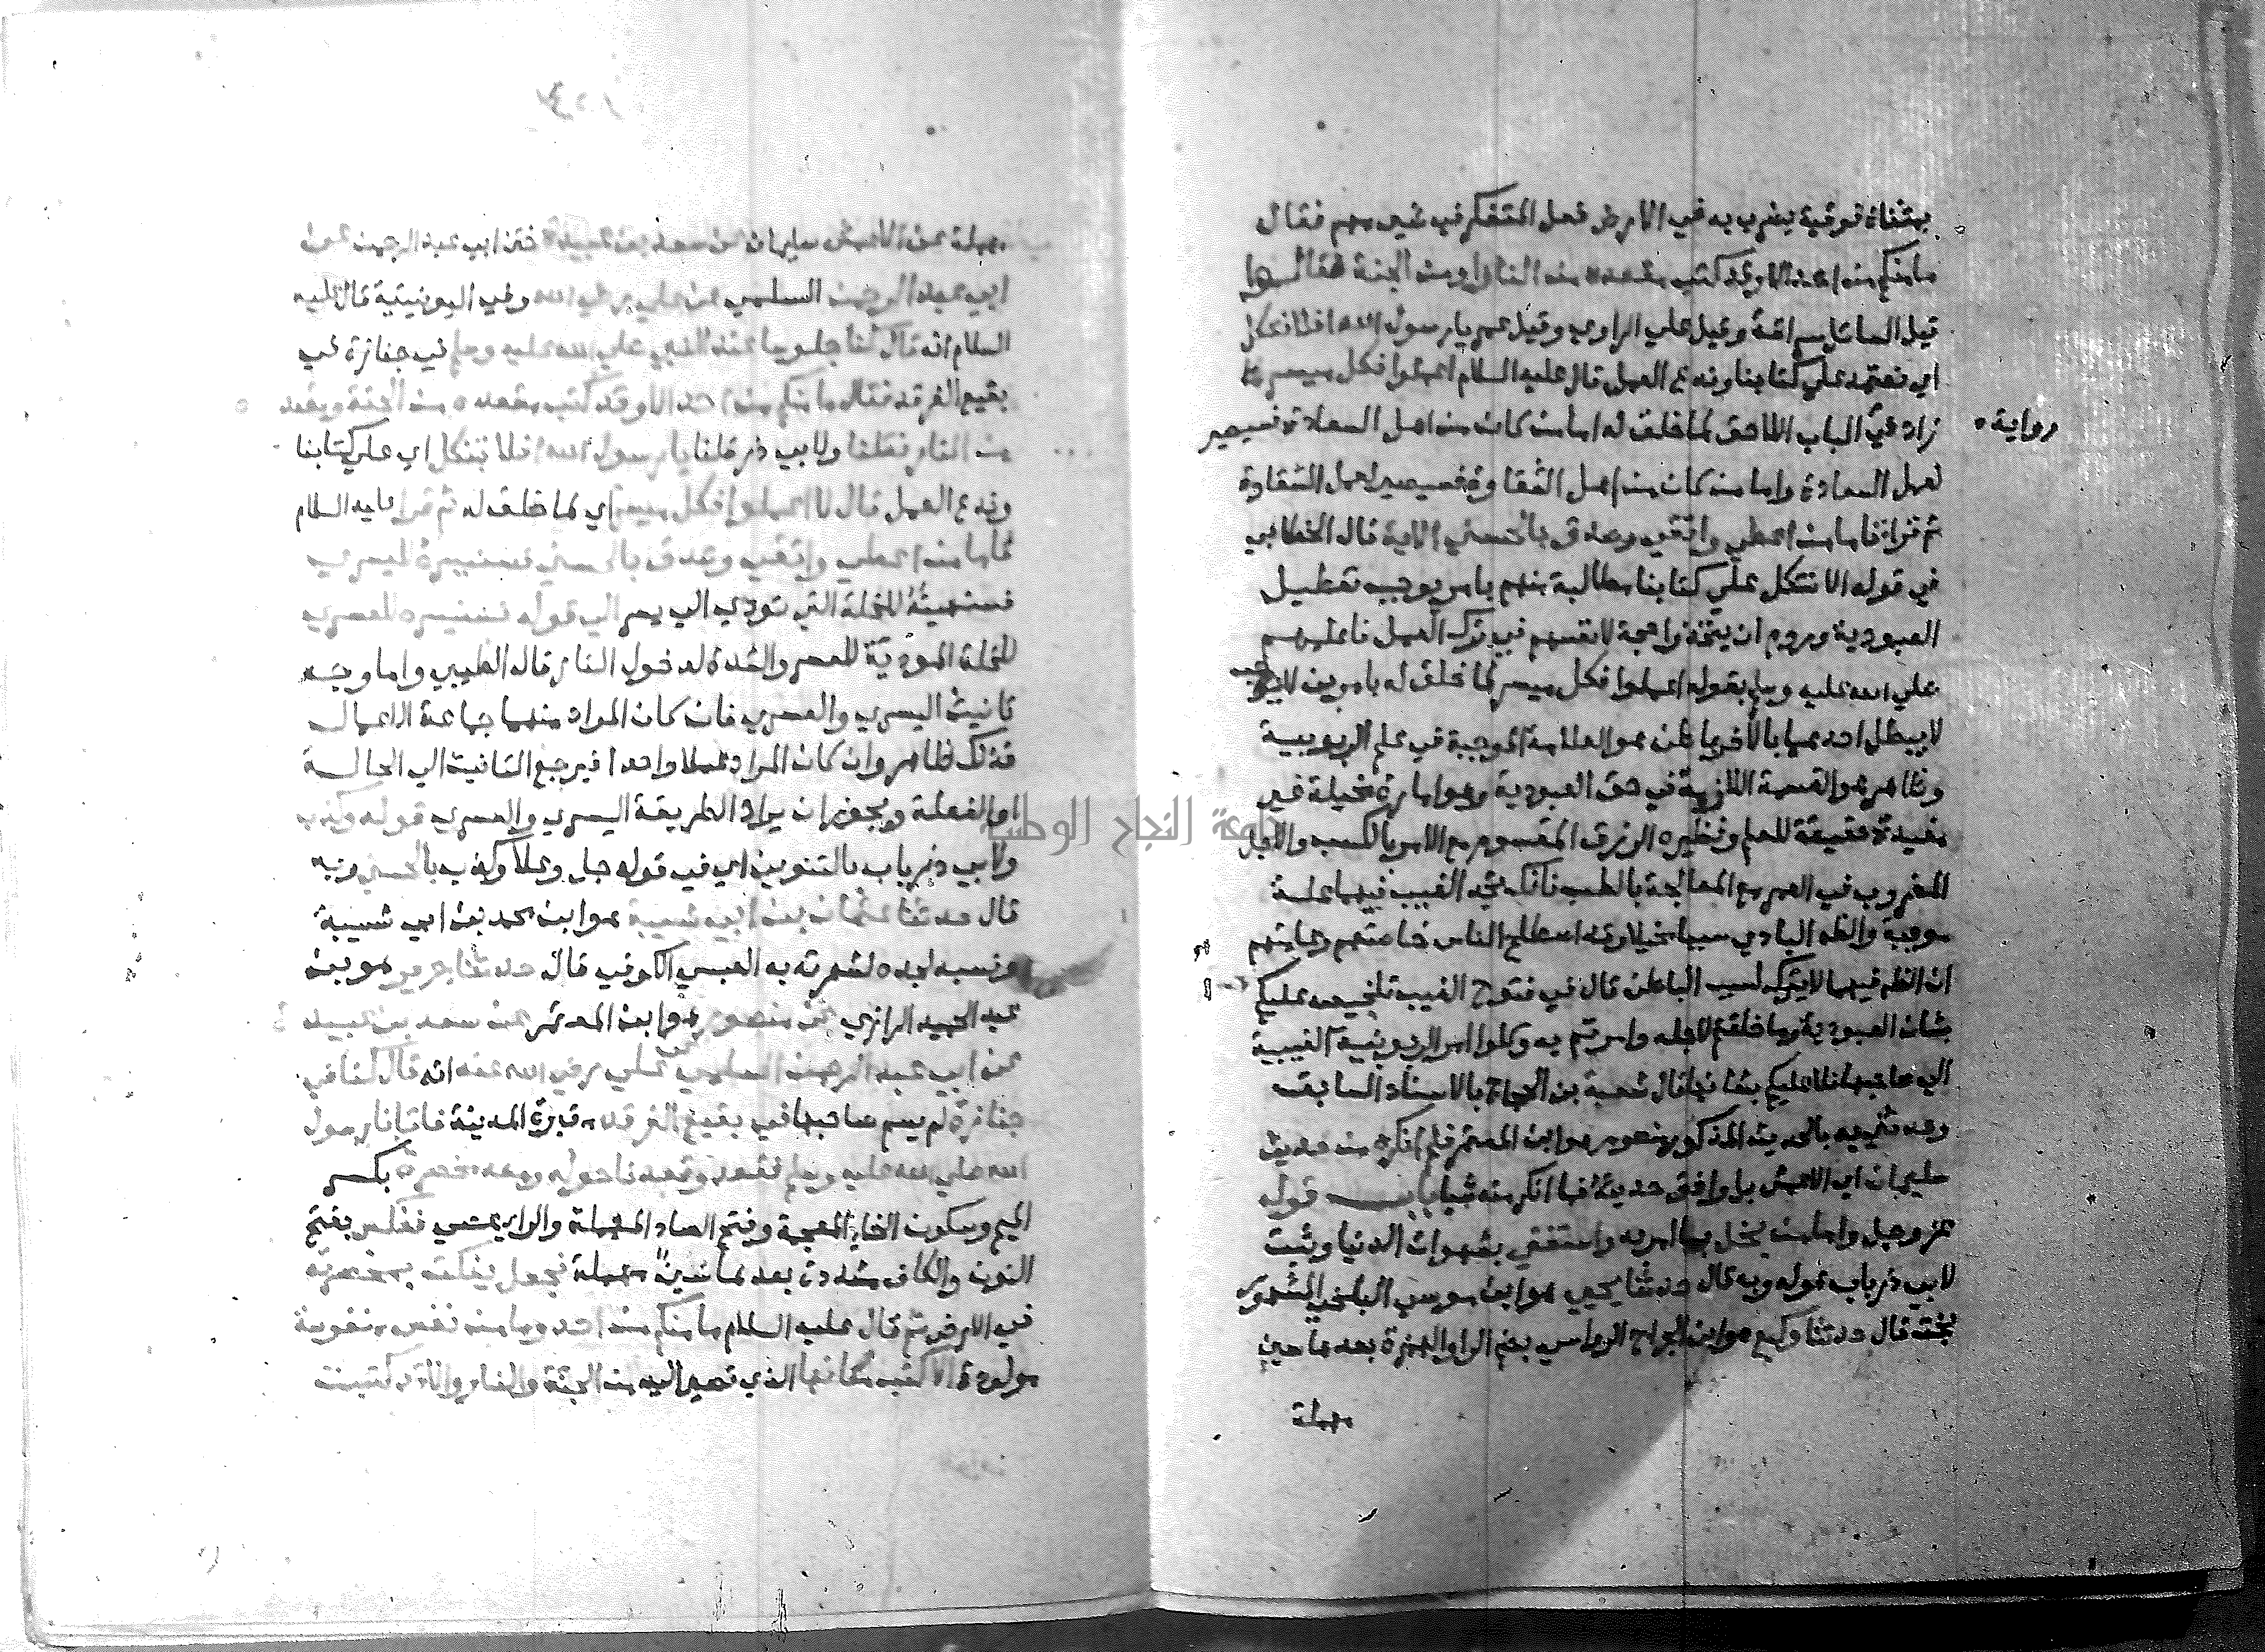 بمثناة فوقية يضرب به في الارض فعل المتفكر في شي مهم فقال
ما منكم من احد الا وقد كتب مقعده من النار او من الجنة فقالوا
قيل السائل سراقة وقيل علي الراوي وقيل عمر يا رسول الله افلا نتكل
اي نعتمد علي كتابنا وندع العمل قال عليه السلام اعملوا فكل ميسر
زاد في الباب اللاحق لما خلق له اما من كان من اهل السعادة فسيصير
رواية
لعمل السعادة واما من كان من اهل الشقاوة فسيصير لعمل الشقاوة
ثم قرا فاما من اعطي واتقي وصدق بالحسني الاية قال الخطابي
في قوله الا نتكل علي كتابنا مطالبة منهم بامر يوجب تعطيل
العبودية وروم ان يتخذوا حجة لانفسهم في ترك العمل فاعلمهم
صلي الله عليه وسلم بقوله اعملوا فكل ميسر لما خلق له بامرين
لا يبطل احدهما بالاخر باطن هو العلامة الموجبة في علم الربوبية
وظاهر هو القسمة اللازمة في حق العبودية وهو امارة مخيلة غير
مفيدة حقيقة للعلم ونظيره الرزق المقسوم مع الامر بالكسب والاجل
المضروب في العمر مع المعالجة بالطب فانك تجد المغيب فيهما علة
موجبة والظاهر البادي سببا مخيلا وقد اصطلح الناس خاصتهم وعامتهم
ان الظاهر فيهما لا يترك لسبب الباطن قال في فتوح الغيب تلخيصه عليكم
بشان العبودية وما خلقتم لاجله وامرتم به وكلوا امر الربوبية الغيبية
الي صاحبها فلا عليكم بشانها قال شعبة بن الحجاج بالاسناد السابق
وحدثني به بالحديث المذكور منصور هو ابن المعتمر فلم انكره من حديث
سليمان اي الاعمش بل وافق حديثه فما انكر منه شيا باب قوله
عز وجل واما من بخل بما امر به واستغني بشهوات الدنيا وثبت
لابي ذر باب قوله وبه قال حدثنا يحيي هو ابن موسي البلخي المشهور
بخت قال حدثنا وكيع هو ابن الجراح الرواسي بضم الرا والهمزة بعدها سين
مهملة
مهملة عن الاعمش سليمان عن سعد بن عبيدة ختن ابي عبد الرحمن عن
ابي عبد الرحمن السلمي عن علي رضي الله وفي اليونينية قال عليه
السلام انه قال كنا جلوسا عند النبي صلي الله عليه وسلم في جنازة في
بقيع الغرقد فقال ما منكم من احد الا وقد كتب مقعده من الجنة ومقعده
من النار فقلنا ولابي ذر قلنا يا رسول الله افلا نتكل اي علي كتابنا
وندع العمل قال لا اعملوا فكل ميسر اي لما خلق له ثم قرا عليه السلام
فاما من اعطي واتقي وصدق بالحسني فسنيسره لليسري
فسنهيئه للخلة التي تودي الي يسر الي قوله فسنيسره للعسري
للخلة المودية للعسر والشدة لدخول النار قال الطيبي واما وجه
تانيث اليسري والعسري فان كان المراد منهما جماعة الاعمال
فذلك ظاهر وان كان المراد عملا واحدا فيرجع التانيث الي الحالة
او الفعلة ويجوز ان يراد الطريقة اليسري والعسري قوله وكذب
ولابي ذر باب بالتنوين اي في قوله جل وعلا وكذب بالحسني وبه
قال حدثنا عثمان بن ابي شيبة هو ابن محمد بن ابي شيبة
ونسبه لجده لشهرته به العبسي الكوفي قال حدثنا جرير هو بن
عبد الحميد الرازي عن منصور هو ابن المعتمر عن سعد بن عبيدة
عن ابي عبد الرحمن السلمي عن علي رضي الله عنه انه قال كنا في
جنازة لم يسم صاحبها في بقيع الغرقد مقبرة المدينة فاتانا رسول
الله صلي الله عليه وسلم فقعد وقعدنا حوله ومعه مخصرة بكسر
الميم وسكون الخاء المعجمة وفتح الصاد المهملة والراء عصي فنكس بفتح
النون والكاف مشددة بعدها سين مهملة فجعل ينكت بمخصرته
في الارض ثم قال عليه السلام ما منكم من احد وما من نفس منفوسة
مولودة الا كتب مكانها الذي تصير اليه من الجنة والنار والا قد كتبت
جامعة النجاح الوطنية